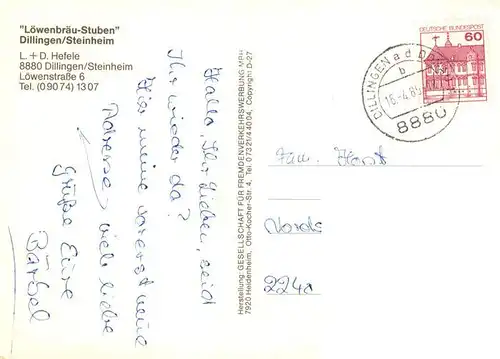 "Löwenbräu-Stuben"
Dillingen/Steinheim
L. + D. Hefele
8880 Dillingen/Steinheim
Löwenstraße 6
Tel. (0 90 74) 13 07
Hallo, Ihr Lieben, seid
Ihr wieder da?
Hier meine vorerst neue
Adresse, viele liebe
Grüße Eure
Bärbel
Herstellung: GESELLSCHAFT FÜR FREMDENVERKEHRSWERBUNG MPH
7920 Heidenheim, Otto-Kocher-Str. 4, Tel. 0 73 21/4 40 04, Copyright D-27
DEUTSCHE BUNDESPOST
60
DILLINGEN a d
b
8880
Fam. Horst
224a